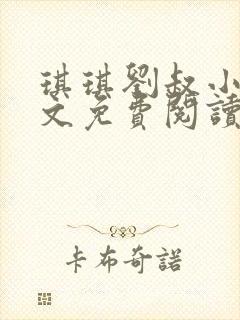 琪琪劉叔小
文免費閱讀
卡布奇諾